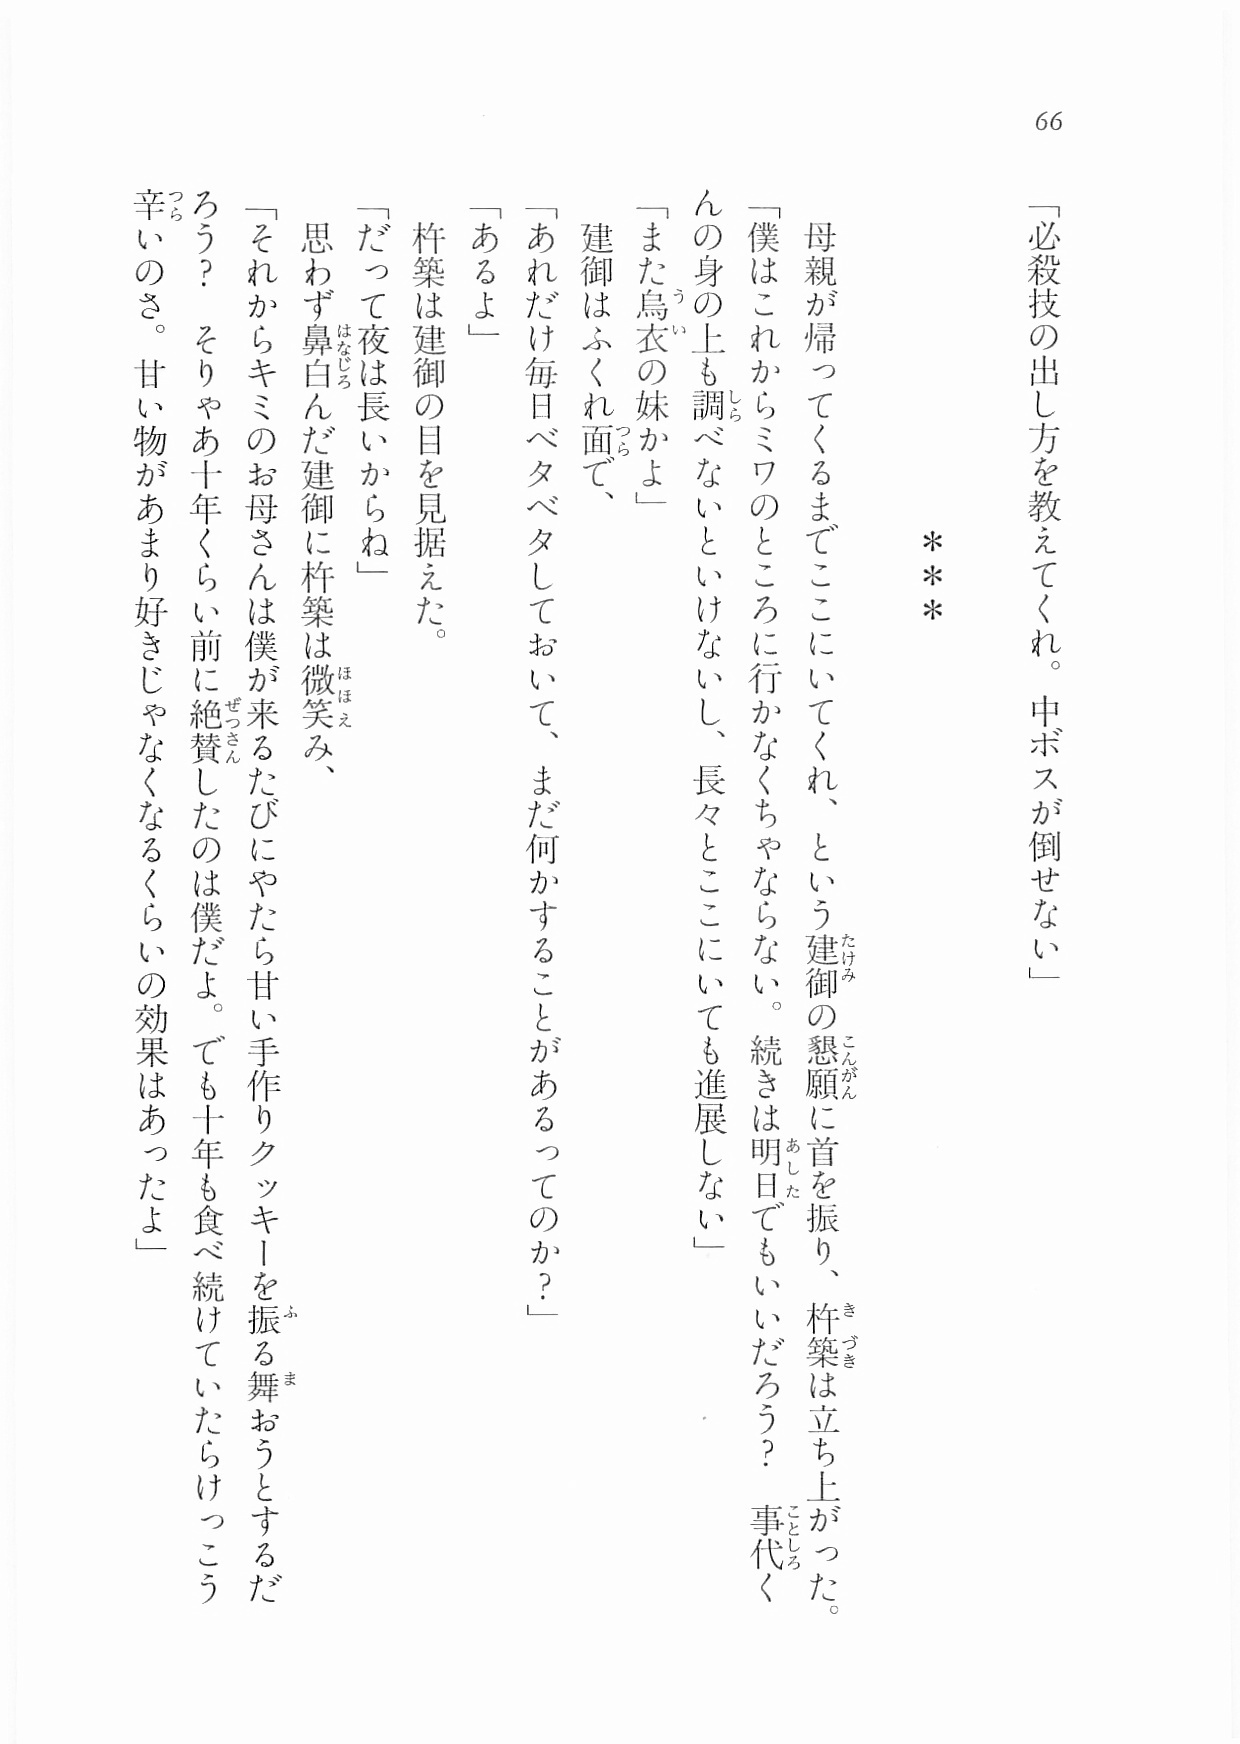 66
「必殺技の出し方を教えてくれ。中ボスが倒せない」
＊＊＊
母親が帰ってくるまでここにいてくれ、という建御の懇願に首を振り、杵築は立ち上がった。
「僕はこれからミワのところに行かなくちゃならない。続きは明日でもいいだろう？　事代く
んの身の上も調べないといけないし、長々とここにいても進展しない」
「また烏衣の妹かよ」
建御はふくれ面で、
「あれだけ毎日ベタベタしておいて、まだ何かすることがあるってのか？」
「あるよ」
杵築は建御の目を見据えた。
「だって夜は長いからね」
思わず鼻白んだ建御に杵築は微笑み、
「それからキミのお母さんは僕が来るたびにやたら甘い手作りクッキーを振る舞おうとするだ
ろう？　そりゃあ十年くらい前に絶賛したのは僕だよ。でも十年も食べ続けていたらけっこう
辛いのさ。甘い物があまり好きじゃなくなるくらいの効果はあったよ」